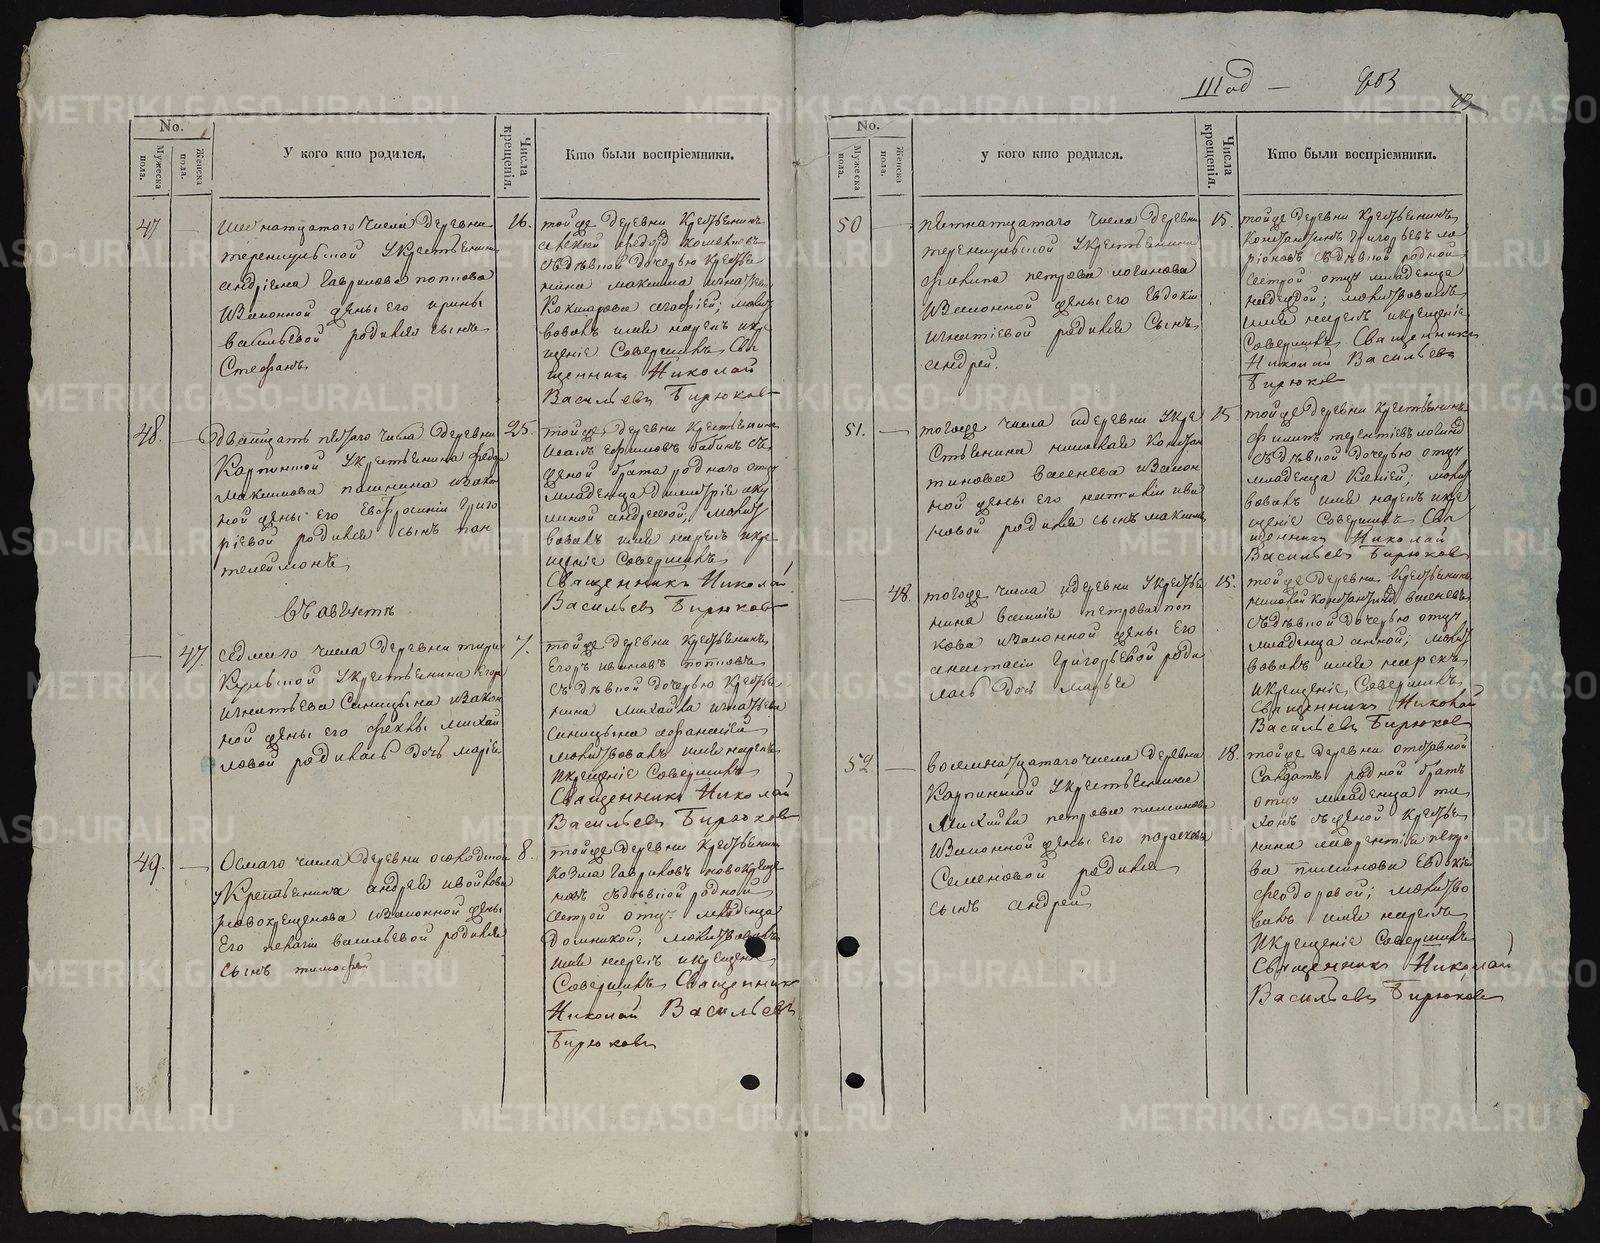 No.
Мужеска пола.
Женска пола.
У кого кто родился.
Числа крещенія.
Кто были воспріемники.
47
числа деревни
у крестьянина
андріяна Гаврилова попкова
изаконной жены его ирины
васильевой родился сынъ
Стефанъ
16.
тойже деревни крестьянинъ
съ дѣвкой дочерью крестья
нина максима игнатьева
агафіей; молит
вовалъ имя нарекъ икре
щеніе Совершилъ Свя
щенникъ Николай
Васильевъ Бирюковъ
48.
двадцать пятаго числа деревни
у крестьянина федора
максимова изакон
ной жены его Евфросиніи Григо
ріевой родился сынъ пан
телеймонъ
25.
тойже деревни крестьянинъ
женой брата роднаго отцу
младенца Димитрія аку
линой андреевой; молит
вовалъ имя нарекъ икре
щеніе Совершилъ
Священникъ Николай
Васильевъ Бирюковъ
Въ августѣ
47.
седмаго числа деревни
у крестьянина Егора
игнатьева Синицына изакон
ной жены его феклы михай
ловой родилась дочь марія
7.
тойже деревни крестьянинъ
Егоръ ивановъ попковъ
съ дѣвкой дочерью крестья
нина михайла игнатьева
Синицына афанасіей
молитвовалъ имя нарекъ
икрещеніе Совершилъ
Священникъ Николай
Васильевъ Бирюковъ
49.
Осмаго числа деревни
у крестьянина андрея
новокрещенова изаконной жены
Его пелагіи васильевой родился
сынъ тимофей
8.
тойже деревни крестьянинъ
Козма Гавриловъ новокреще
новъ съ дѣвкой родной
сестрой отцу младенца
домникой; молитвовалъ
имя нарекъ икрещеніе
Совершилъ Священникъ
Николай Васильевъ
Бирюковъ
No.
Мужеска пола.
Женска пола.
у кого кто родился.
Числа крещенія.
Кто были воспріемники.
50
пятнатцатаго числа деревни
у крестьянина
филипа петрова логинова
изаконной жены его Евдокіи
игнатіевой родился Сынъ
андрей.
15.
тойже деревни крестьянинъ
Константинъ Григорьевъ ла
ріоновъ съ дѣвкой родной
сестрой отцу младенца
надеждой; молитвовалъ
имя нарекъ икрещеніе
Совершилъ Священникъ
Николай Васильевъ
Бирюковъ
51.
тогоже числа идеревни у кре
стьянина николая Констан
тинова изакон
ной жены его наталіи ива
новой родился сынъ максимъ
15
тойже деревни крестьянинъ
филипъ терентіевъ
съ дѣвкой дочерью отцу
младенца Ксеніей; молит
вовалъ имя нарекъ икре
щеніе Совершилъ Свя
щенникъ Николай
Васильевъ Бирюковъ
48.
тогоже числа идеревни у крестья
нина василія петрова поп
кова изаконной жены Его
анастасіи Григорьевой роди
лась Дочь марья
15.
тойже деревни крестьянинъ
николай Константиновъ
съ дѣвкой дочерью отцу
младенца анной; молит
вовалъ имя нарекъ
икрещеніе Совершилъ
Священникъ Николай
Васильевъ Бирюковъ
52
восемнатцатаго числа деревни
Карпиной у крестьянина
Михаила петрова пишикова
изаконной жены Его параскевы
Семеновой родился
сынъ андрей
18.
тойже деревни
Солдатъ родной братъ
отцу младенца ти
хонъ съ женой крестья
нина лаврентія петро
ва Евдокіей
феодоровой; молитво
валъ имя нарекъ
икрещеніе Совершилъ
Священникъ Николай
Васильевъ Бирюковъ
METRIKI.GASO-URAL.RU